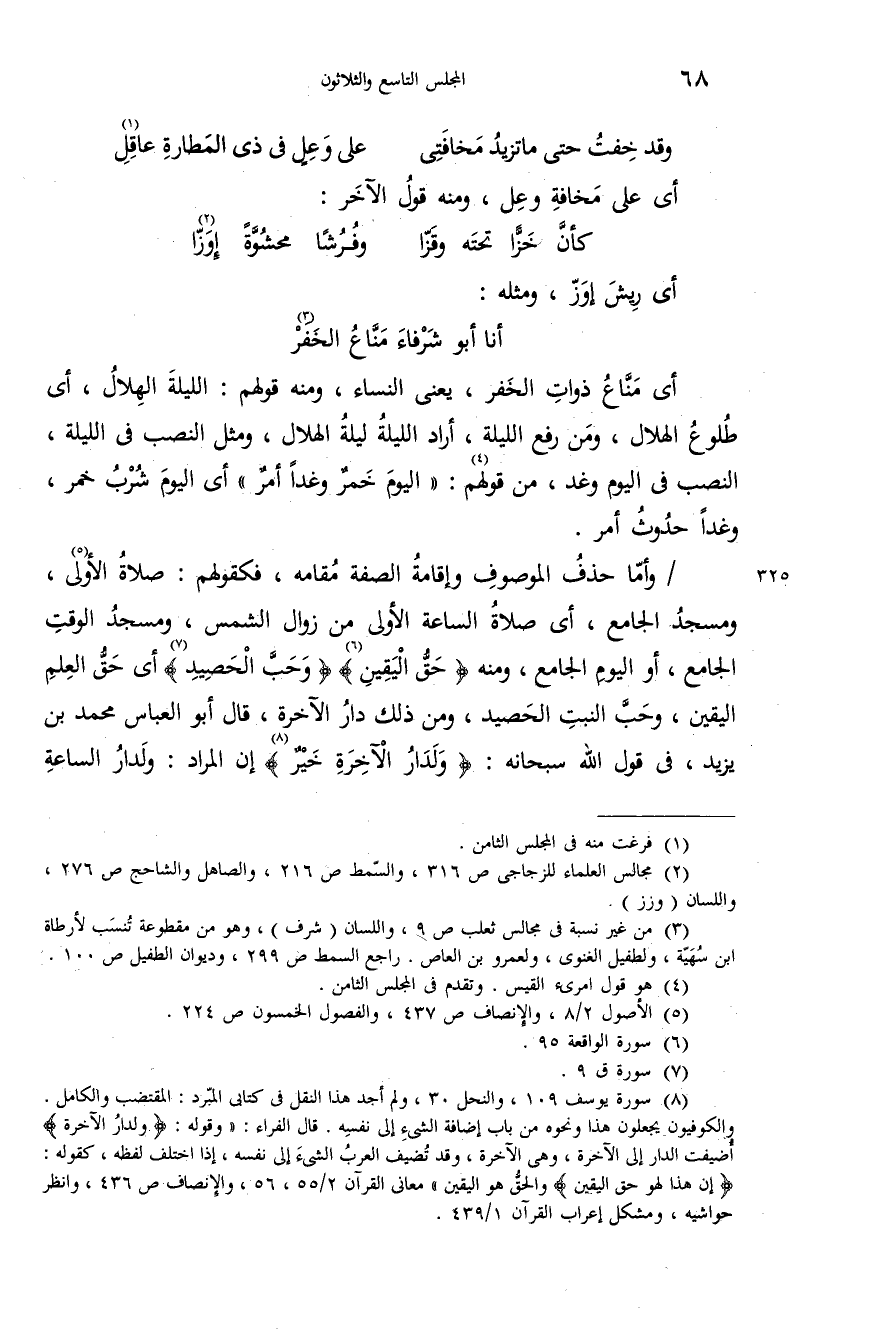 ٦٨ المجلس التاسع والثلاثون
وقد خِفتُ حتى ماتزيدُ مَخافَتِى على وَعِلٍ فى ذى المَطارةِ عاقِلِ(١)
أى على مَخافةِ وعِل ، ومنه قولُ الآخَر :
كأنَّ خَزًّا تحتَه وقَزّا وفُرُشًا محشُوَّةً إِوَزّا(٢)
أى رِيشَ إوَزّ ، ومثله :
أنا أبو شَرْفاءَ مَنَّاعُ الخَفَرْ(٣)
أى مَنَّاعُ ذواتِ الخَفر ، يعنى النساء ، ومنه قولهم : الليلةَ الهِلالُ ، أى
طُلوعُ الهلال ، ومَن رفع الليلة ، أراد الليلةُ ليلةُ الهلال ، ومثل النصب فى الليلة ،
النصب فى اليوم وغد ، من قولهم(٤) : « اليومَ خَمرٌ وغداً أمرٌ » أى اليومَ شُرْبُ خمر ،
وغداً حدُوثُ أمر .
٣٢٥ / وأمّا حذفُ الموصوفِ وإقامةُ الصفة مُقامه ، فكقولهم : صلاةُ الأُولَى(٥) ،
ومسجدُ الجامع ، أى صلاةُ الساعة الأولى من زوال الشمس ، ومسجدُ الوقتِ
الجامع ، أو اليومِ الجامع ، ومنه ﴿ حَقُّ الْيَقِينِ ﴾(٦) ﴿ وَحَبَّ الْحَصِيدِ ﴾(٧) أى حَقُّ العِلمِ
اليقين ، وحَبَّ النبتِ الحَصيد ، ومن ذلك دارُ الآخرة ، قال أبو العباس محمد بن
يزيد ، فى قول الله سبحانه : ﴿ وَلَدَارُ الْآخِرَةِ خَيْرٌ ﴾(٨) إن المراد : ولَدارُ الساعةِ
(١) فرغت منه فى المجلس الثامن .
(٢) مجالس العلماء للزجاجى ص ٣١٦ ، والسّمط ص ٢١٦ ، والصاهل والشاحج ص ٢٧٦ ،
واللسان ( وزز ) .
(٣) من غير نسبة فى مجالس ثعلب ص ٩ ، واللسان ( شرف ) ، وهو من مقطوعة تُنسَب لأرطاة
ابن سُهَيّة ، ولطفيل الغنوى ، ولعمرو بن العاص . راجع السمط ص ٢٩٩ ، وديوان الطفيل ص ١٠٠ .
(٤) هو قول امرىء القيس . وتقدم فى المجلس الثامن .
(٥) الأصول ٨/٢ ، والإنصاف ص ٤٣٧ ، والفصول الخمسون ص ٢٢٤ .
(٦) سورة الواقعة ٩٥ .
(٧) سورة ق ٩ .
(٨) سورة يوسف ١٠٩ ، والنحل ٣٠ ، ولم أجد هذا النقل فى كتابى المبّرد : المقتضب والكامل .
والكوفيون يجعلون هذا ونحوه من باب إضافة الشىءِ إلى نفسِه . قال الفراء : « وقوله : ﴿ ولدارُ الآخرة ﴾
أضيفت الدار إلى الآخرة ، وهى الآخرة ، وقد تُضيف العربُ الشىءَ إلى نفسه ، إذا اختلف لفظه ، كقوله :
﴿ إن هذا لهو حق اليقين ﴾ والحقُّ هو اليقين » معانى القرآن ٥٥/٢ ، ٥٦ ، والإنصاف ص ٤٣٦ ، وانظر
حواشيه ، ومشكل إعراب القرآن ٤٣٩/١ .